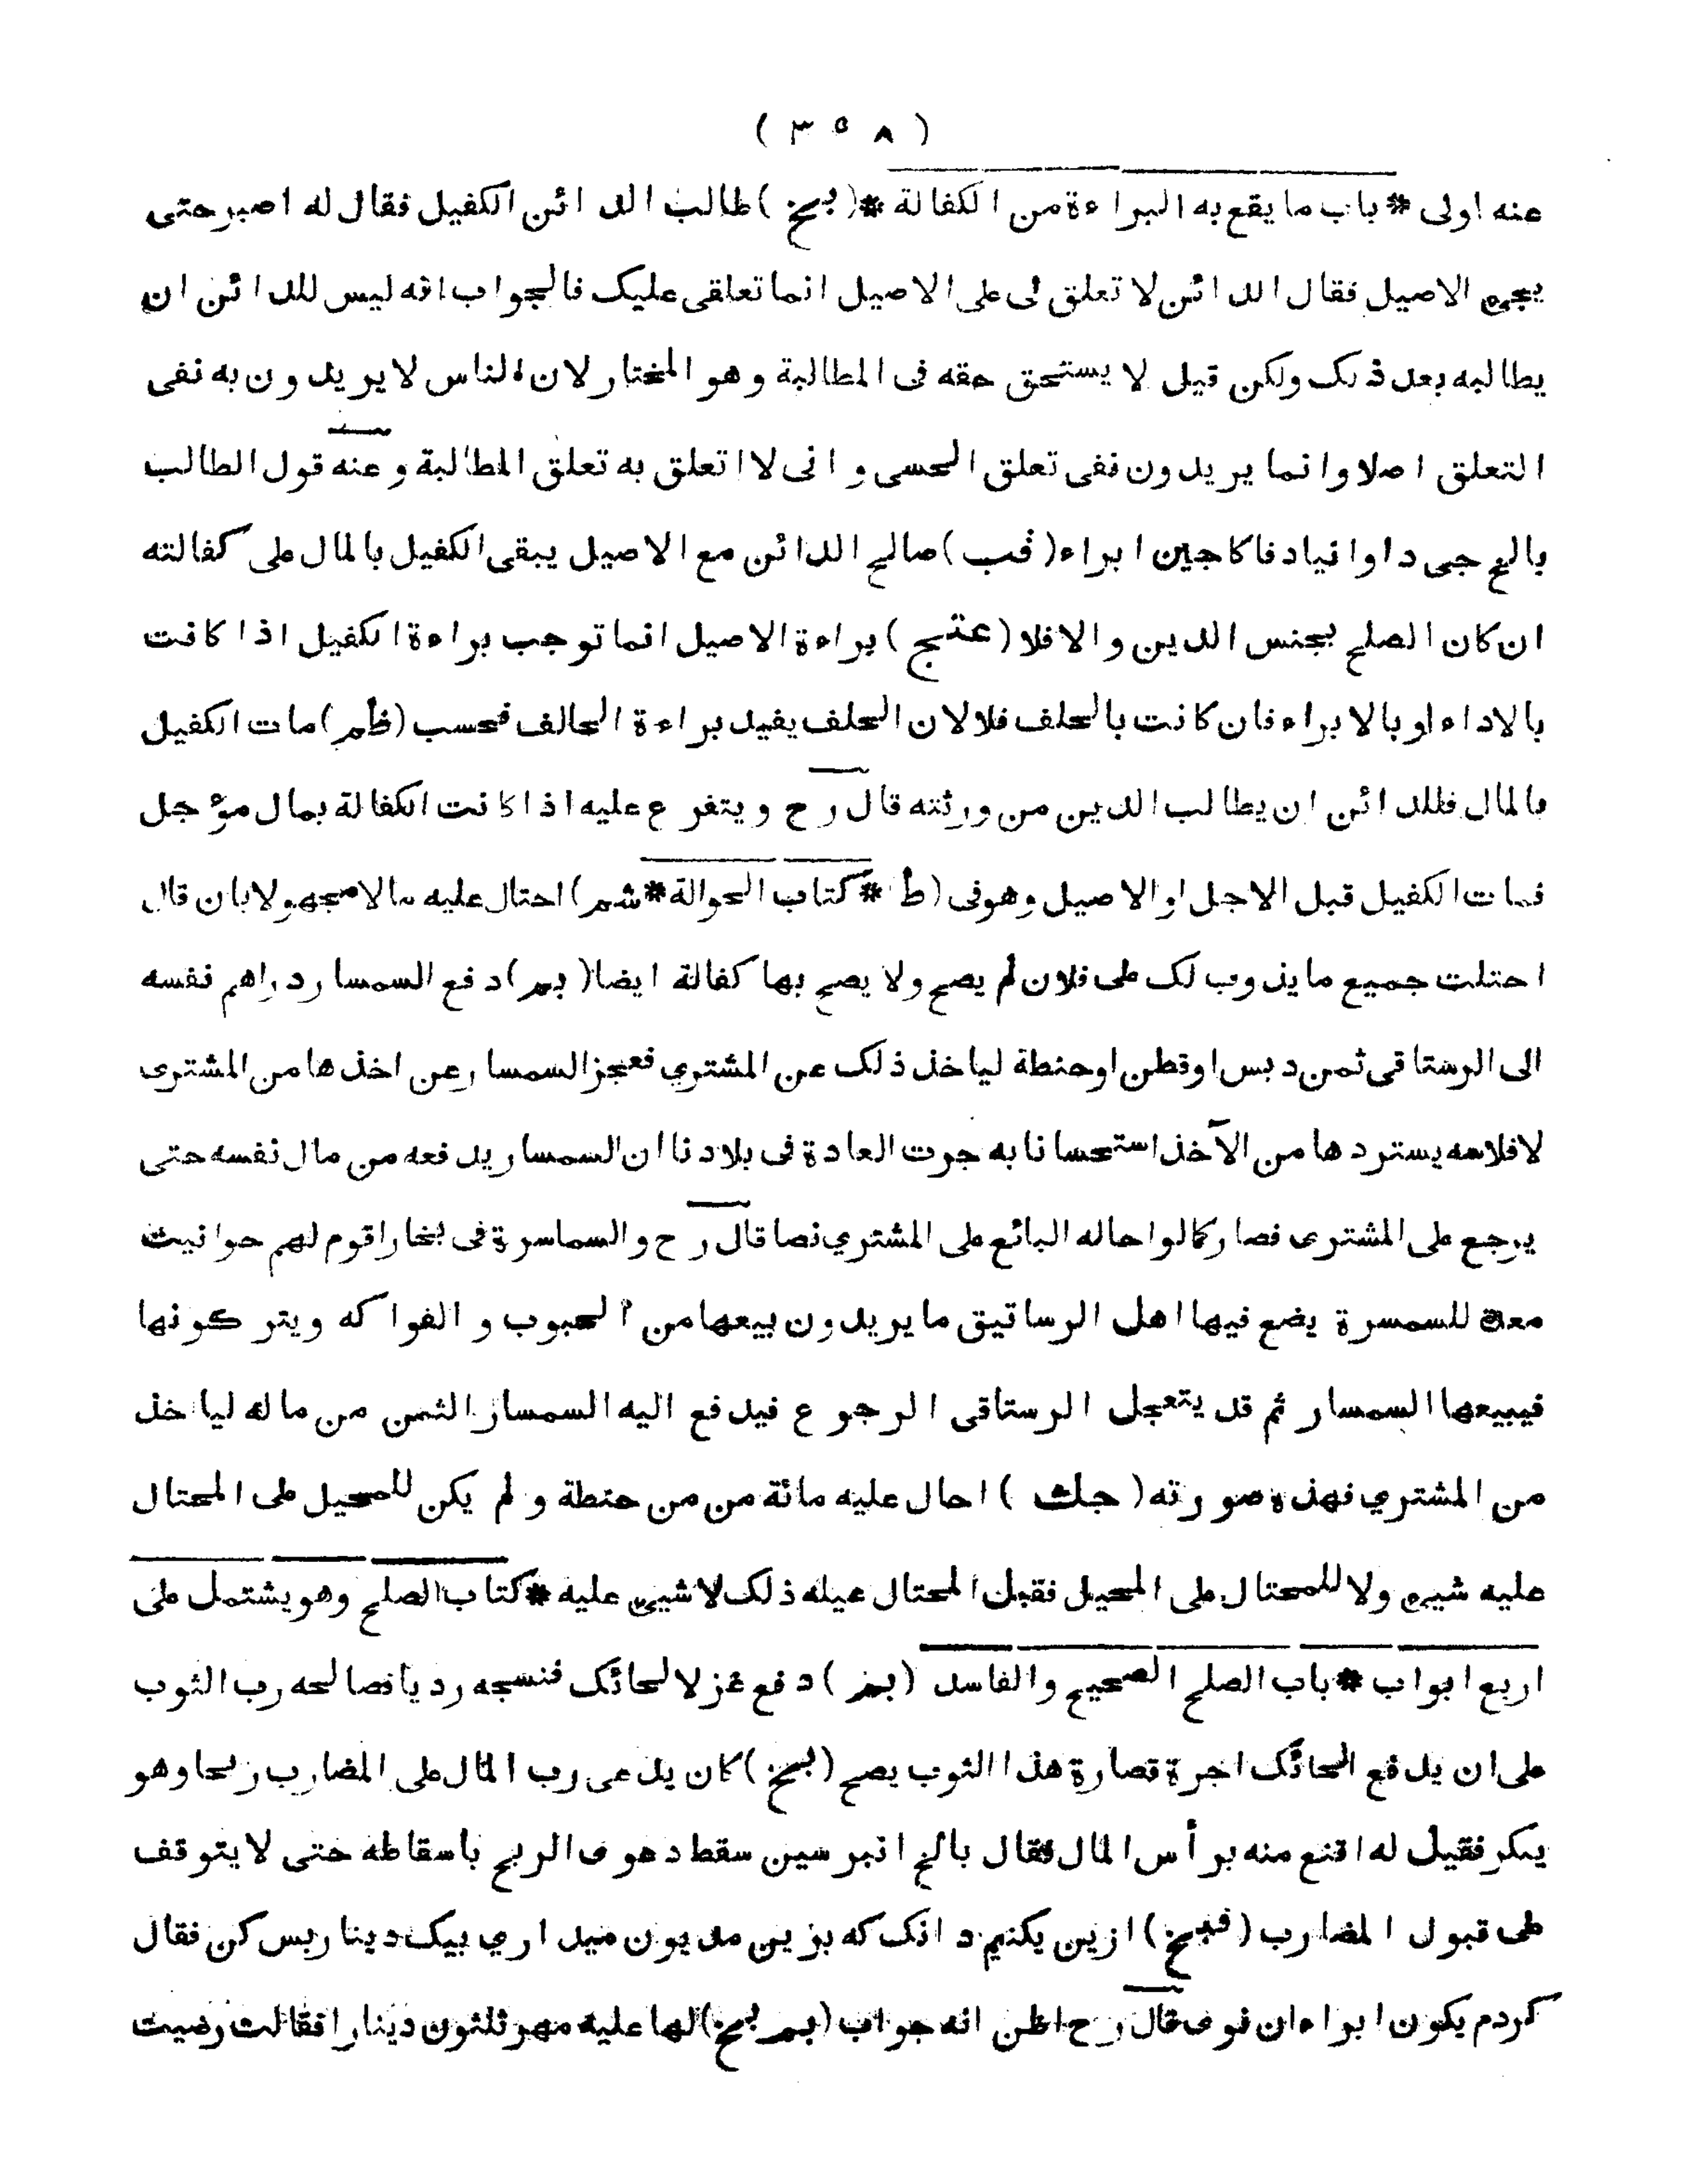 ( ٣٥٨ )
عنه اولى * باب ما يقع به البراءة من الكفالة * ( بخ ) طالب الدائن الكفيل فقال له اصبر حتى
يجىء الاصيل فقال الدائن لا تعلق لى على الاصيل انما تعلقى عليك فالجواب انه ليس للدائن ان
يطالبه بعد ذلك ولكن قيل لا يستحق حقه فى المطالبة وهو المختار لان الناس لا يريدون به نفى
التعلق اصلا وانما يريدون نفى تعلق الحسى وانى لا اتعلق به تعلق المطالبة وعنه قول الطالب
ابراء ( فب ) صالح الدائن مع الاصيل يبقى الكفيل بالمال على كفالته
ان كان الصلح بجنس الدين والا فلا ( عتج ) براءة الاصيل انما توجب براءة الكفيل اذا كانت
بالاداء او بالابراء فان كانت بالحلف فلا لان الحلف يفيد براءة الحالف فحسب ( ظم ) مات الكفيل
بالمال فللدائن ان يطالب الدين من ورثته قال رح ويتفرع عليه اذا كانت الكفالة بمال مؤجل
فمات الكفيل قبل الاجل او الاصيل وهو فى ( ط * كتاب الحوالة * شم ) احتال عليه مالا مجهولا بان قال
احتلت جميع ما يذوب لك على فلان لم يصح ولا يصح بها كفالة ايضا ( بم ) دفع السمسار دراهم نفسه
الى الرستاقى ثمن دبس او قطن او حنطة لياخذ ذلك عن المشتري فعجز السمسار عن اخذها من المشترى
لافلاسه يستردها من الآخذ استحسانا به جرت العادة فى بلادنا ان السمسار يدفعه من مال نفسه حتى
يرجع على المشترى فصار كما لو احاله البائع على المشتري نصا قال رح والسماسرة فى بخارا قوم لهم حوانيت
معدة للسمسرة يضع فيها اهل الرساتيق ما يريدون بيعها من الحبوب والفواكه ويتركونها
فيبيعها السمسار ثم قد يتعجل الرستاقى الرجوع فيدفع اليه السمسار الثمن من ماله لياخذ
من المشتري فهذه صورته ( جلث ) احال عليه مائة من من حنطة ولم يكن للمحيل على المحتال
عليه شيء ولا للمحتال على المحيل فقبل المحتال عيله ذلك لا شيئ عليه * كتاب الصلح وهو يشتمل على
اربع ابواب * باب الصلح الصحيح والفاسد ( بم ) دفع غزلا لحائك فنسجه رديا فصالحه رب الثوب
على ان يدفع الحائك اجرة قصارة هذا الثوب يصح ( بخ ) كان يدعى رب المال على المضارب ربحا وهو
ينكر فقيل له اقنع منه برأس المال فقال سقط دعوى الربح باسقاطه حتى لا يتوقف
على قبول المضارب ( فبخ ) ازين يكنيم دانك كه بزين مديون ميداري بيك دينار بس كن فقال
كردم يكون ابراء ان نوى قال رح اظن انه جواب ( بم بخ ) لها عليه مهر ثلثون دينارا فقالت رضيت